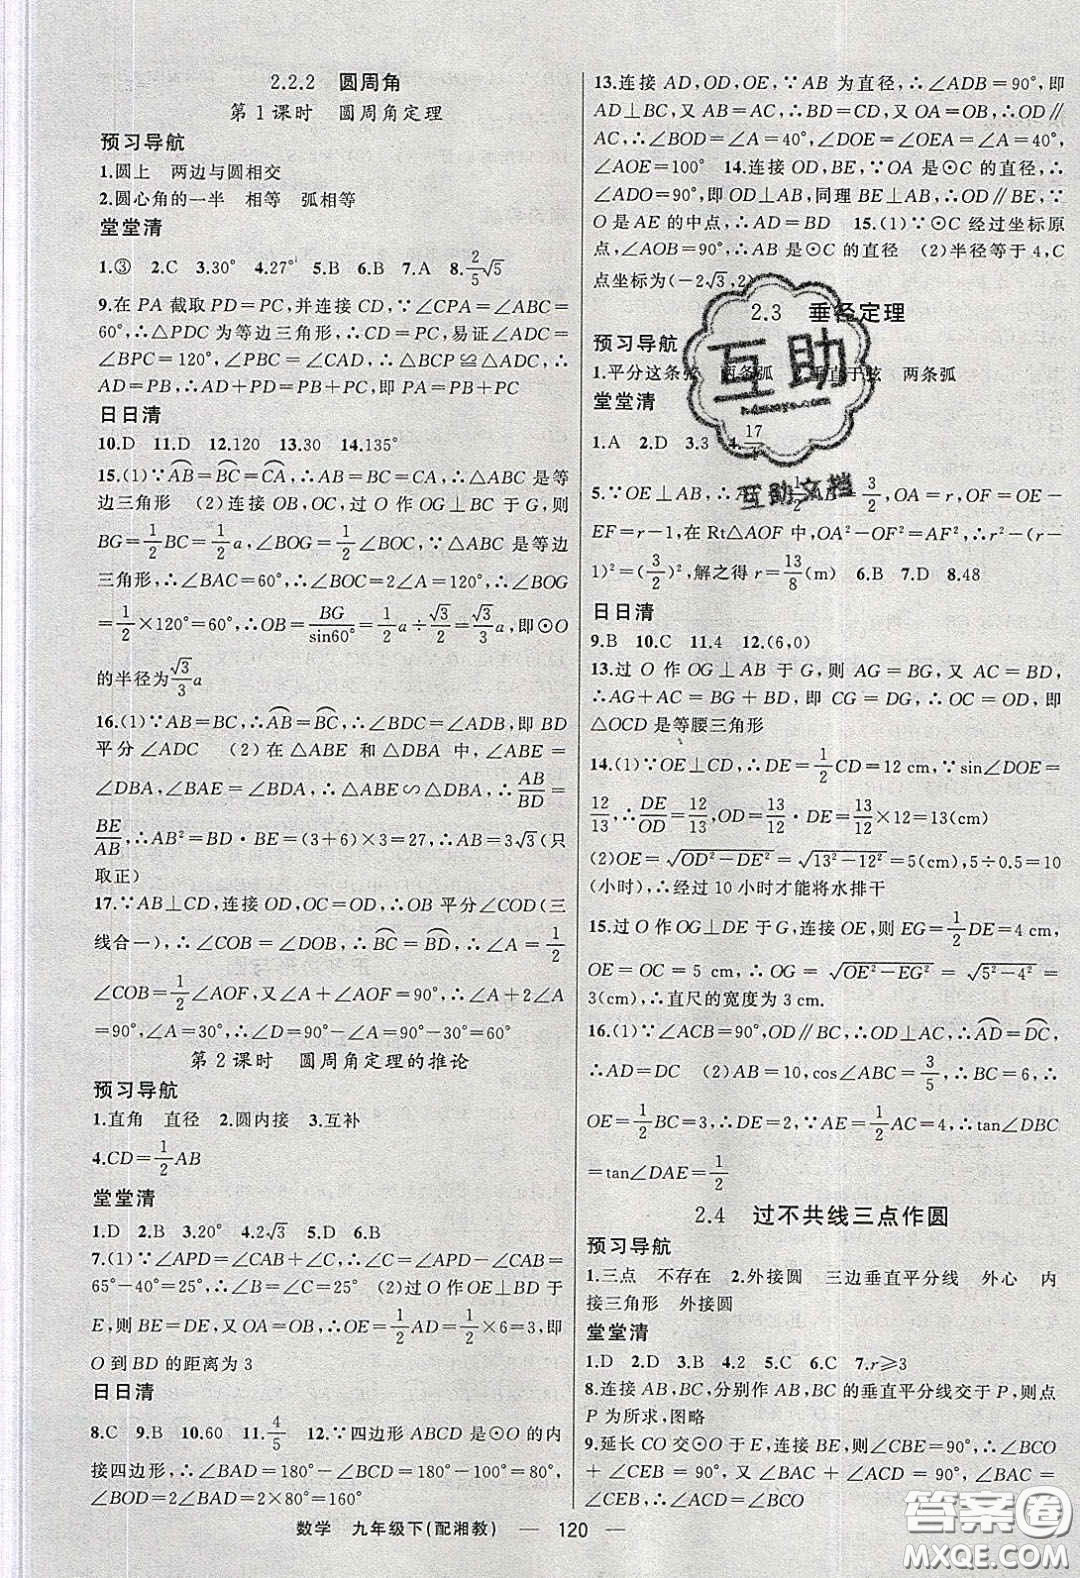 2.2.2 圆周角
第1课时 圆周角定理
预习导航
1.圆上 两边与圆相交
2.圆心角的一半 相等 弧相等
堂堂清
1.③ 2.C 3.30° 4.27° 5.B 6.B 7.A 8.2/5√5
9.在 PA 截取 PD=PC,并连接 CD,∵∠CPA=∠ABC=
60°,∴△PDC 为等边三角形,∴CD=PC,易证∠ADC=
∠BPC=120°,∠PBC=∠CAD,∴△BCP≌△ACD,∴
AD=PB,∴PA=AD+PD=PB+PC
日日清
10.D 11.D 12.120 13.30 14.135°
15.(1)∵AB⌒=BC⌒=CA⌒,∴AB=BC=CA,∴△ABC 是等
边三角形 (2)连接 OB,OC,过 O 作 OG⊥BC 于 G,则
BG=1/2BC=1/2a,∠BOG=1/2∠BOC,∵△ABC 是等边
三角形,∴∠BAC=60°,∴∠BOC=2∠A=120°,∴∠BOG
=1/2×120°=60°,∴OB=BG/sin60°=1/2a÷√3/2=√3/3a,即⊙O
的半径为√3/3a
16.(1)∵AB=BC,∴AB⌒=BC⌒,∴∠BDC=∠ADB,即 BD
平分∠ADC (2)在△ABE 和△DBA 中,∠BAE=
∠DBA,∠ABE=∠DBA,∴△ABE∽△DBA,∴AB/BD=
BE/AB,∴AB²=BD·BE=(3+6)×3=27,∴AB=3√3(只
取正)
17.∵AB⊥CD,连接 OD,OC=OD,∴OB 平分∠COD(三
线合一),∴∠COB=∠DOB,∴BC⌒=BD⌒,∴∠A=1/2
∠COB=1/2∠AOF,又∠A+∠AOF=90°,∴∠A+2∠A
=90°,∠A=30°,∴∠D=90°-∠A=90°-30°=60°
第2课时 圆周角定理的推论
预习导航
1.直角 直径 2.圆内接 3.互补
4.CD=1/2AB
堂堂清
1.D 2.B 3.20° 4.2√3 5.D 6.B
7.(1)∵∠APD=∠CAB+∠C,∴∠C=∠APD-∠CAB=
65°-40°=25°,∴∠B=∠C=25° (2)过 O 作 OE⊥BD 于
E,则 BE=DE,又 OA=OB,∴OE=1/2AD=1/2×6=3,即
O 到 BD 的距离为 3
日日清
8.C 9.B 10.60 11.4/5 12.∵四边形 ABCD 是⊙O 的内
接四边形,∴∠BAD=180°-∠BCD=180°-100°=80°,
∠BOD=2∠BAD=2×80°=160°
13.连接 AD,OD,OE,∵AB 为直径,∴∠ADB=90°,即
AD⊥BC,又 AB=AC,∴BD=DC,又 OA=OB,∴OD∥
AC,∴∠BOD=∠A=40°,∠DOE=∠OEA=∠A=40°,
∠AOE=100° 14.连接 OD,BE,∵OA 是⊙C 的直径,∴
∠ADO=90°,即 OD⊥AB,同理 BE⊥AB,∴OD∥BE,∵
O 是 AE 的中点,∴AD=BD 15.(1)∵⊙C 经过坐标原
点,∠AOB=90°,∴AB 是⊙C 的直径 (2)半径等于 4,C
点坐标为(-2√3,2)
2.3 垂径定理
预习导航
1.平分这条弦 两条弧 垂直于弦 两条弧
堂堂清
1.A 2.D 3.3
5.∵OE⊥AB,OA=r,OF=OE-
EF=r-1,在 Rt△AOF 中,OA²-OF²=AF²,∴r²-(r-
1)²=(3/2)²,解之得 r=13/8(m) 6.B 7.D 8.48
日日清
9.B 10.C 11.4 12.(6,0)
13.过 O 作 OG⊥AB 于 G,则 AG=BG,又 AC=BD,
∴AG+AC=BG+BD,即 CG=DG,∴OC=OD,即
△OCD 是等腰三角形
14.(1)∵OE⊥CD,∴DE=1/2CD=12 cm,∵sin∠DOE=
12/13,∴DE/OD=12/13,OD=13/12·DE=13/12×12=13(cm)
(2)OE=√(OD²-DE²)=√(13²-12²)=5(cm),5÷0.5=10
(小时),∴经过 10 小时才能将水排干
15.过 O 作 OG⊥DE 于 G,连接 OE,则 EG=1/2DE=4 cm,
OE=OC=5 cm,∴OG=√(OE²-EG²)=√(5²-4²)=
3(cm),∴直尺的宽度为 3 cm.
16.(1)∵∠ACB=90°,OD∥BC,∴OD⊥AC,∴AD⌒=DC⌒,
∴AD=DC (2)AB=10,cos∠ABC=3/5,∴BC=6,∴
OE=1/2BC=3,∴DE=2,∵AE=1/2AC=4,∴tan∠DBC
=tan∠DAE=1/2
2.4 过不共线三点作圆
预习导航
1.三点 不存在 2.外接圆 三边垂直平分线 外心 内
接三角形 外接圆
堂堂清
1.D 2.B 3.B 4.2 5.C 6.C 7.r≥3
8.连接 AB,BC,分别作 AB,BC 的垂直平分线交于 P,则点
P 为所求,图略
9.延长 CO 交⊙O 于 E,连接 BE,则∠CBE=90°,∠BCO
+∠CEB=90°,又∠BAC+∠ACD=90°,∠BAC=
∠CEB,∴∠BCO=∠ACD
数学 九年级下(配湘教) — 120 —
互助
互助文档
答案圈
MXQE.COM